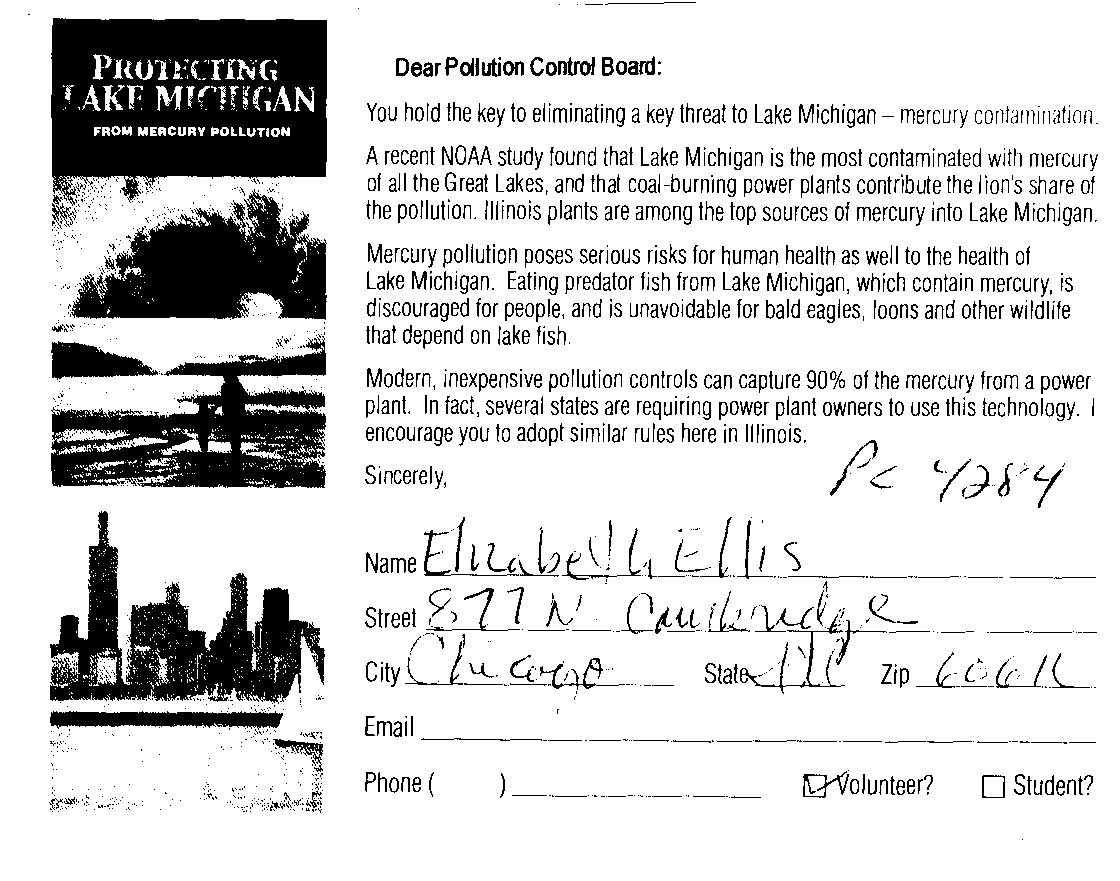 PROTECTING
LAKE MICHIGAN
FROM MERCURY POLLUTION
Dear Pollution Control Board:
You hold the key to eliminating a key threat to Lake Michigan – mercury contamination.
A recent NOAA study found that Lake Michigan is the most contaminated with mercury
of all the Great Lakes, and that coal-burning power plants contribute the lion's share of
the pollution. Illinois plants are among the top sources of mercury into Lake Michigan.
Mercury pollution poses serious risks for human health as well to the health of
Lake Michigan. Eating predator fish from Lake Michigan, which contain mercury, is
discouraged for people, and is unavoidable for bald eagles, loons and other wildlife
that depend on lake fish.
Modern, inexpensive pollution controls can capture 90% of the mercury from a power
plant. In fact, several states are requiring power plant owners to use this technology. I
encourage you to adopt similar rules here in Illinois.
Sincerely,
PC 4284
Name Elizabeth Ellis
Street 877 N
City Chicago State Zip
Email
Phone ( ) Volunteer? Student?